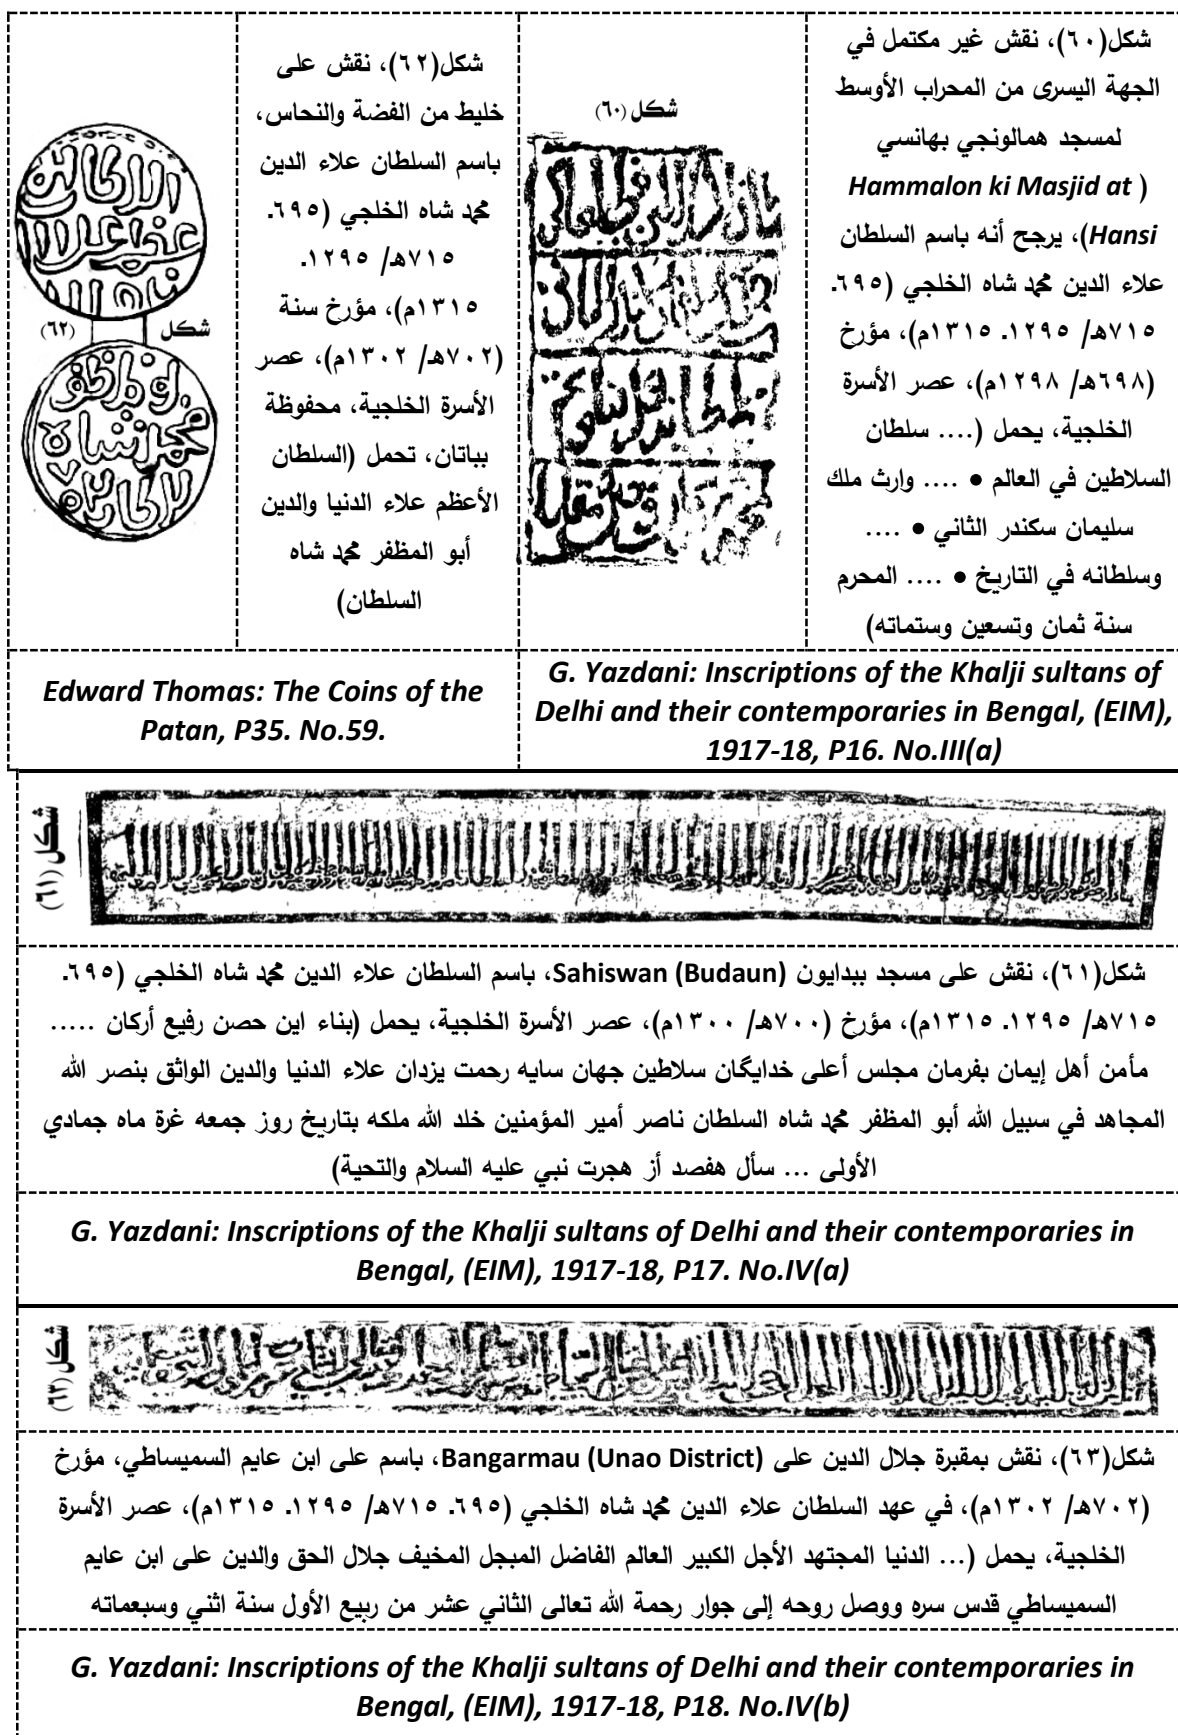 شكل(٦٠)، نقش غير مكتمل في
الجهة اليسرى من المحراب الأوسط
لمسجد همالونجي بهانسي
( Hammalon ki Masjid at
Hansi)، يرجح أنه باسم السلطان
علاء الدين محمد شاه الخلجي (٦٩٥.
٧١٥هـ/ ١٢٩٥. ١٣١٥م)، مؤرخ
(٦٩٨هـ/ ١٢٩٨م)، عصر الأسرة
الخلجية، يحمل (.... سلطان
السلاطين في العالم • .... وارث ملك
سليمان سكندر الثاني • ....
وسلطانه في التاريخ • .... المحرم
سنة ثمان وتسعين وستماته)
شكل (٦٠)
شكل(٦٢)، نقش على
خليط من الفضة والنحاس،
باسم السلطان علاء الدين
محمد شاه الخلجي (٦٩٥.
٧١٥هـ/ ١٢٩٥.
١٣١٥م)، مؤرخ سنة
(٧٠٢هـ/ ١٣٠٢م)، عصر
الأسرة الخلجية، محفوظة
بباتان، تحمل (السلطان
الأعظم علاء الدنيا والدين
أبو المظفر محمد شاه
السلطان)
شكل (٦٢)
G. Yazdani: Inscriptions of the Khalji sultans of
Delhi and their contemporaries in Bengal, (EIM),
1917-18, P16. No.III(a)
Edward Thomas: The Coins of the
Patan, P35. No.59.
شكل (٦١)
شكل(٦١)، نقش على مسجد ببدايون Sahiswan (Budaun)، باسم السلطان علاء الدين محمد شاه الخلجي (٦٩٥.
٧١٥هـ/ ١٢٩٥. ١٣١٥م)، مؤرخ (٧٠٠هـ/ ١٣٠٠م)، عصر الأسرة الخلجية، يحمل (بناء اين حصن رفيع أركان .....
مأمن أهل إيمان بفرمان مجلس أعلى خدايگان سلاطين جهان سايه رحمت يزدان علاء الدنيا والدين الواثق بنصر الله
المجاهد في سبيل الله أبو المظفر محمد شاه السلطان ناصر أمير المؤمنين خلد الله ملكه بتاريخ روز جمعه غرة ماه جمادي
الأولى ... سأل هفصد أز هجرت نبي عليه السلام والتحية)
G. Yazdani: Inscriptions of the Khalji sultans of Delhi and their contemporaries in
Bengal, (EIM), 1917-18, P17. No.IV(a)
شكل (٦٣)
شكل(٦٣)، نقش بمقبرة جلال الدين على Bangarmau (Unao District)، باسم على ابن عايم السميساطي، مؤرخ
(٧٠٢هـ/ ١٣٠٢م)، في عهد السلطان علاء الدين محمد شاه الخلجي (٦٩٥. ٧١٥هـ/ ١٢٩٥. ١٣١٥م)، عصر الأسرة
الخلجية، يحمل (... الدنيا المجتهد الأجل الكبير العالم الفاضل المبجل المخيف جلال الحق والدين على ابن عايم
السميساطي قدس سره ووصل روحه إلى جوار رحمة الله تعالى الثاني عشر من ربيع الأول سنة اثني وسبعماته
G. Yazdani: Inscriptions of the Khalji sultans of Delhi and their contemporaries in
Bengal, (EIM), 1917-18, P18. No.IV(b)